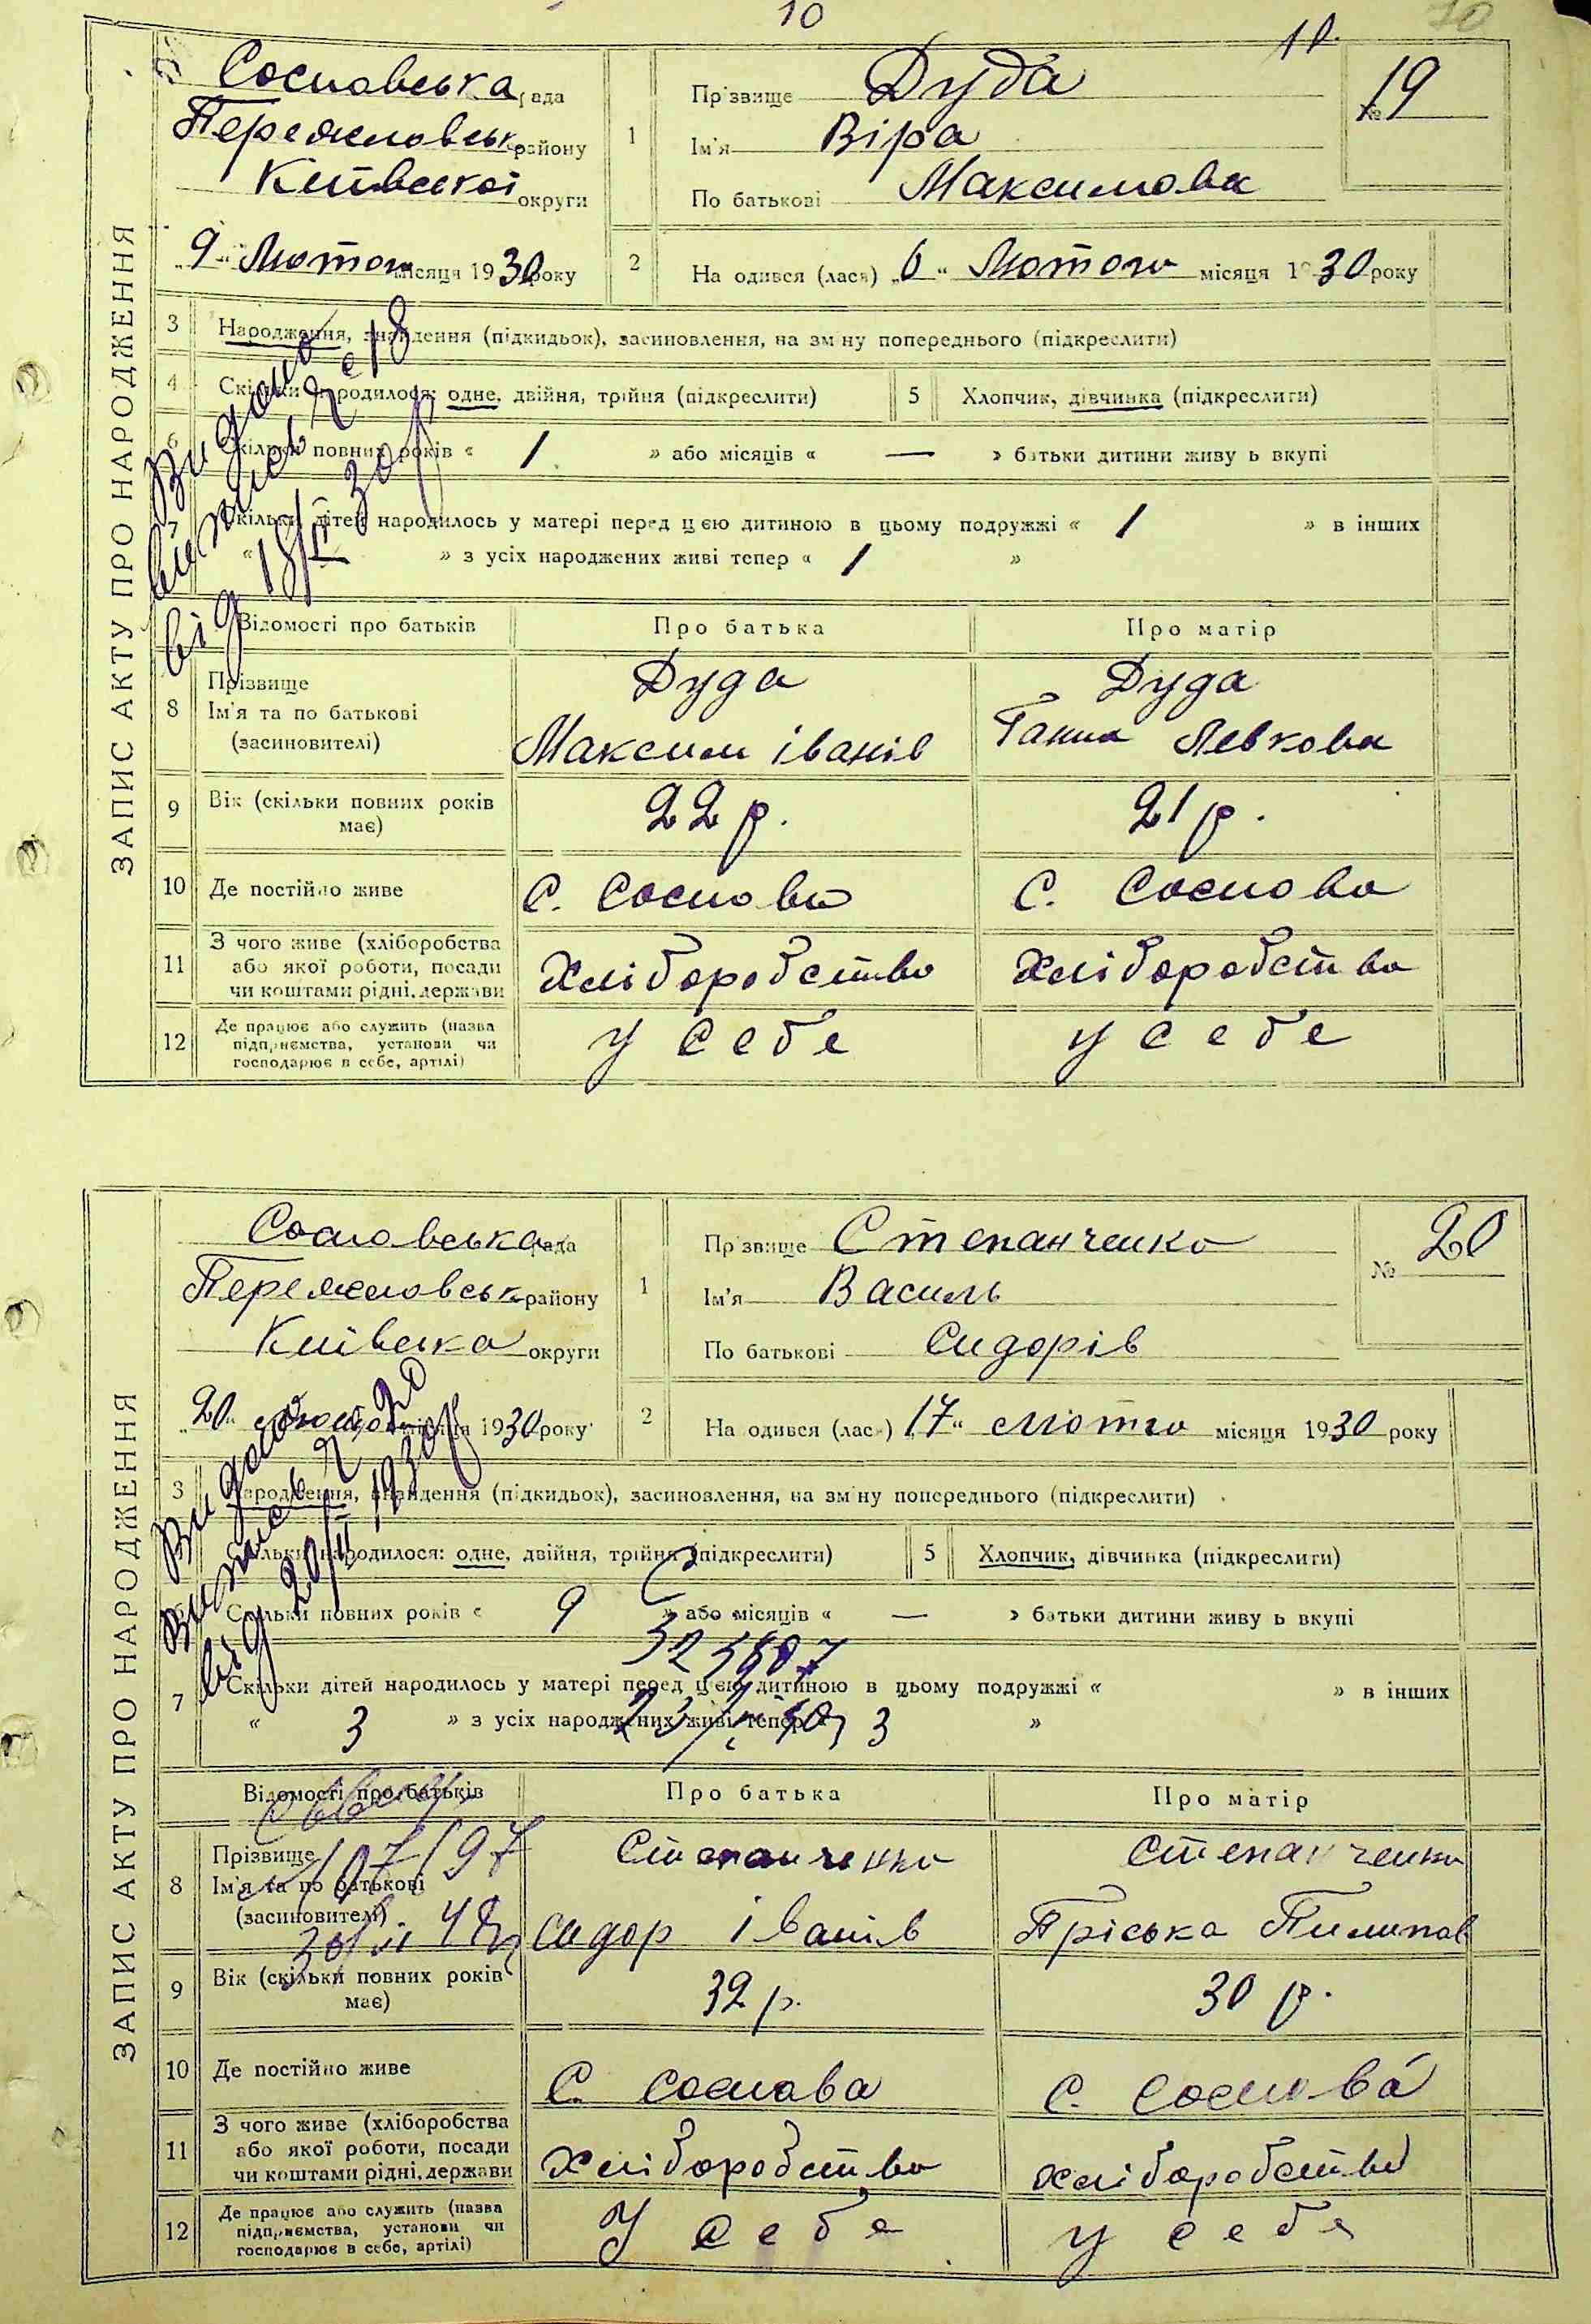 10
10
10
ЗАПИС АКТУ ПРО НАРОДЖЕННЯ
Сосновська рада
Переяславськ району
Київської округи
„9“ Лютого місяця 1930 року
1
Прізвище Дуда
Ім'я Віра
По батькові Максимова
№ 19
2
На одився (лася) „6“ Лютого місяця 1930 року
3 Народження, знайдення (підкидьок), засиновлення, на зміну попереднього (підкреслити)
4 Скільки народилося: одне, двійня, трійня (підкреслити) 5 Хлопчик, дівчинка (підкреслити)
6 Скільки повних років « 1 » або місяців « — » батьки дитини живуть вкупі
7 Скільки дітей народилось у матері перед цією дитиною в цьому подружжі « 1 » в інших
« » з усіх народжених живі тепер « 1 »
Видано
витяг № 18
від 18/II 30 р
Відомості про батьків Про батька Про матір
8 Прізвище Ім'я та по батькові (засиновителі)
Дуда Дуда
Максим Іванів Ганна Левкова
9 Вік (скільки повних років має) 22 р. 21 р.
10 Де постійно живе С. Соснова С. Соснова
11 З чого живе (хліборобства або якої роботи, посади чи коштами рідні, держави Хліборобство Хліборобство
12 Де працює або служить (назва підприємства, установи чи господарює в себе, артілі) У себе У себе
ЗАПИС АКТУ ПРО НАРОДЖЕННЯ
Сосновська рада
Переяславськ району
Київська округи
„20“ Лютого місяця 1930 року
1
Прізвище Степанченко
Ім'я Василь
По батькові Сидорів
№ 20
2
На одився (лас ) „17“ Лютого місяця 1930 року
3 Народження, знайдення (підкидьок), засиновлення, на зміну попереднього (підкреслити)
Скільки народилося: одне, двійня, трійня (підкреслити) 5 Хлопчик, дівчинка (підкреслити)
6 Скільки повних років « 9 » або місяців « — » батьки дитини живуть вкупі
7 Скільки дітей народилось у матері перед цією дитиною в цьому подружжі « » в інших
« 3 » з усіх народжених живі тепер « 3 »
Видано
від 20/II 1930 р
Відомості про батьків Про батька Про матір
8 Прізвище Ім'я та по батькові (засиновителі)
Степанченко Степанченко
Сидор Іванів Пріська Пилипов
9 Вік (скільки повних років має) 32 р. 30 р.
10 Де постійно живе С. Соснова С. Соснова
11 З чого живе (хліборобства або якої роботи, посади чи коштами рідні, держави Хліборобство Хліборобство
12 Де працює або служить (назва підприємства, установи чи господарює в себе, артілі) У себе У себе